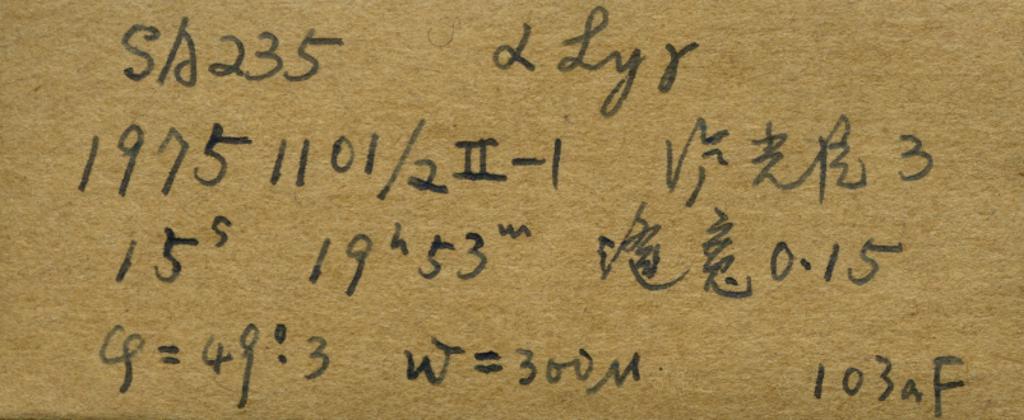 SA235 α Lyr
1975 1101/2 II-1 3
15ˢ 19ʰ53ᵐ 缝宽 0.15
φ=49°.3 W=300μ 103aF